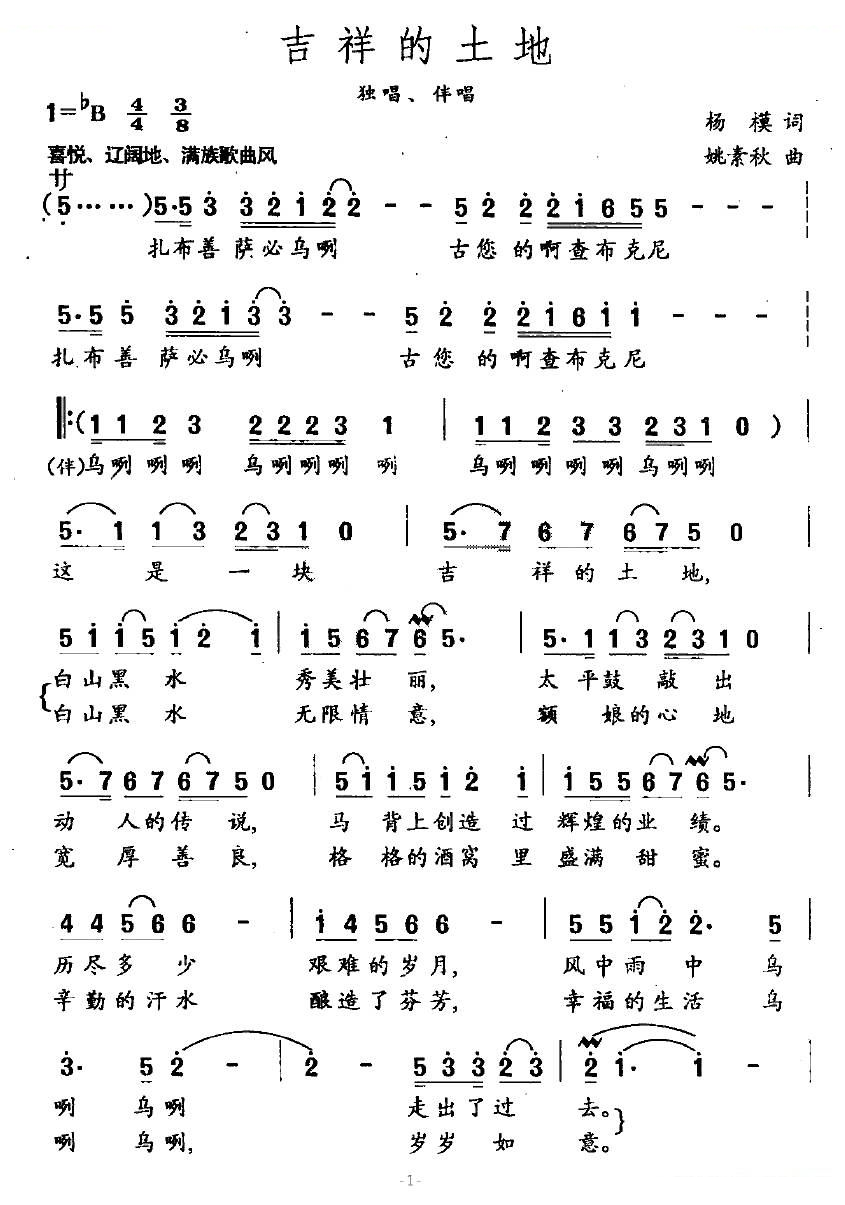 吉祥的土地
独唱、伴唱
1=♭B 4/4 3/8
杨模词
喜悦、辽阔地、满族歌曲风
姚素秋曲
サ
(5……)5·5 3 3 2 1 2 2 - - 5 2 2 2 1 6 5 5 - - -
扎布善 萨必乌咧 古您的啊查布克尼
5·5 5 3 2 1 3 3 - - 5 2 2 2 1 6 1 1 - - -
扎布善 萨必乌咧 古您的啊查布克尼
‖:(1 1 2 3 2 2 2 3 1 | 1 1 2 3 3 2 3 1 0 ) |
(伴)乌咧咧咧 乌咧咧咧 咧 乌咧咧咧咧乌咧咧
5· 1 1 3 2 3 1 0 | 5· 7 6 7 6 7 5 0 |
这 是 一 块 吉 祥的土 地,
5 1 1 5 1 2 1 | 1 5 6 7 6 5· | 5· 1 1 3 2 3 1 0 |
白山黑 水 秀美壮 丽, 太 平鼓 敲 出
白山黑 水 无限情 意, 额 娘的心 地
5· 7 6 7 6 7 5 0 | 5 1 1 5 1 2 1 | 1 5 5 6 7 6 5· |
动 人的传 说, 马 背上创造 过 辉煌的业 绩。
宽 厚善 良, 格 格的酒窝 里 盛满 甜 蜜。
4 4 5 6 6 - | 1 4 5 6 6 - | 5 5 1 2 2· 5 |
历尽多 少 艰难的岁月, 风中雨 中 乌
辛勤的汗水 酿造了芬芳, 幸福的生活 乌
3· 5 2 - | 2 - 5 3 3 2 3 | 2 1· 1 - |
咧 乌咧 走出了过 去。
咧 乌咧, 岁岁如 意。
-1-